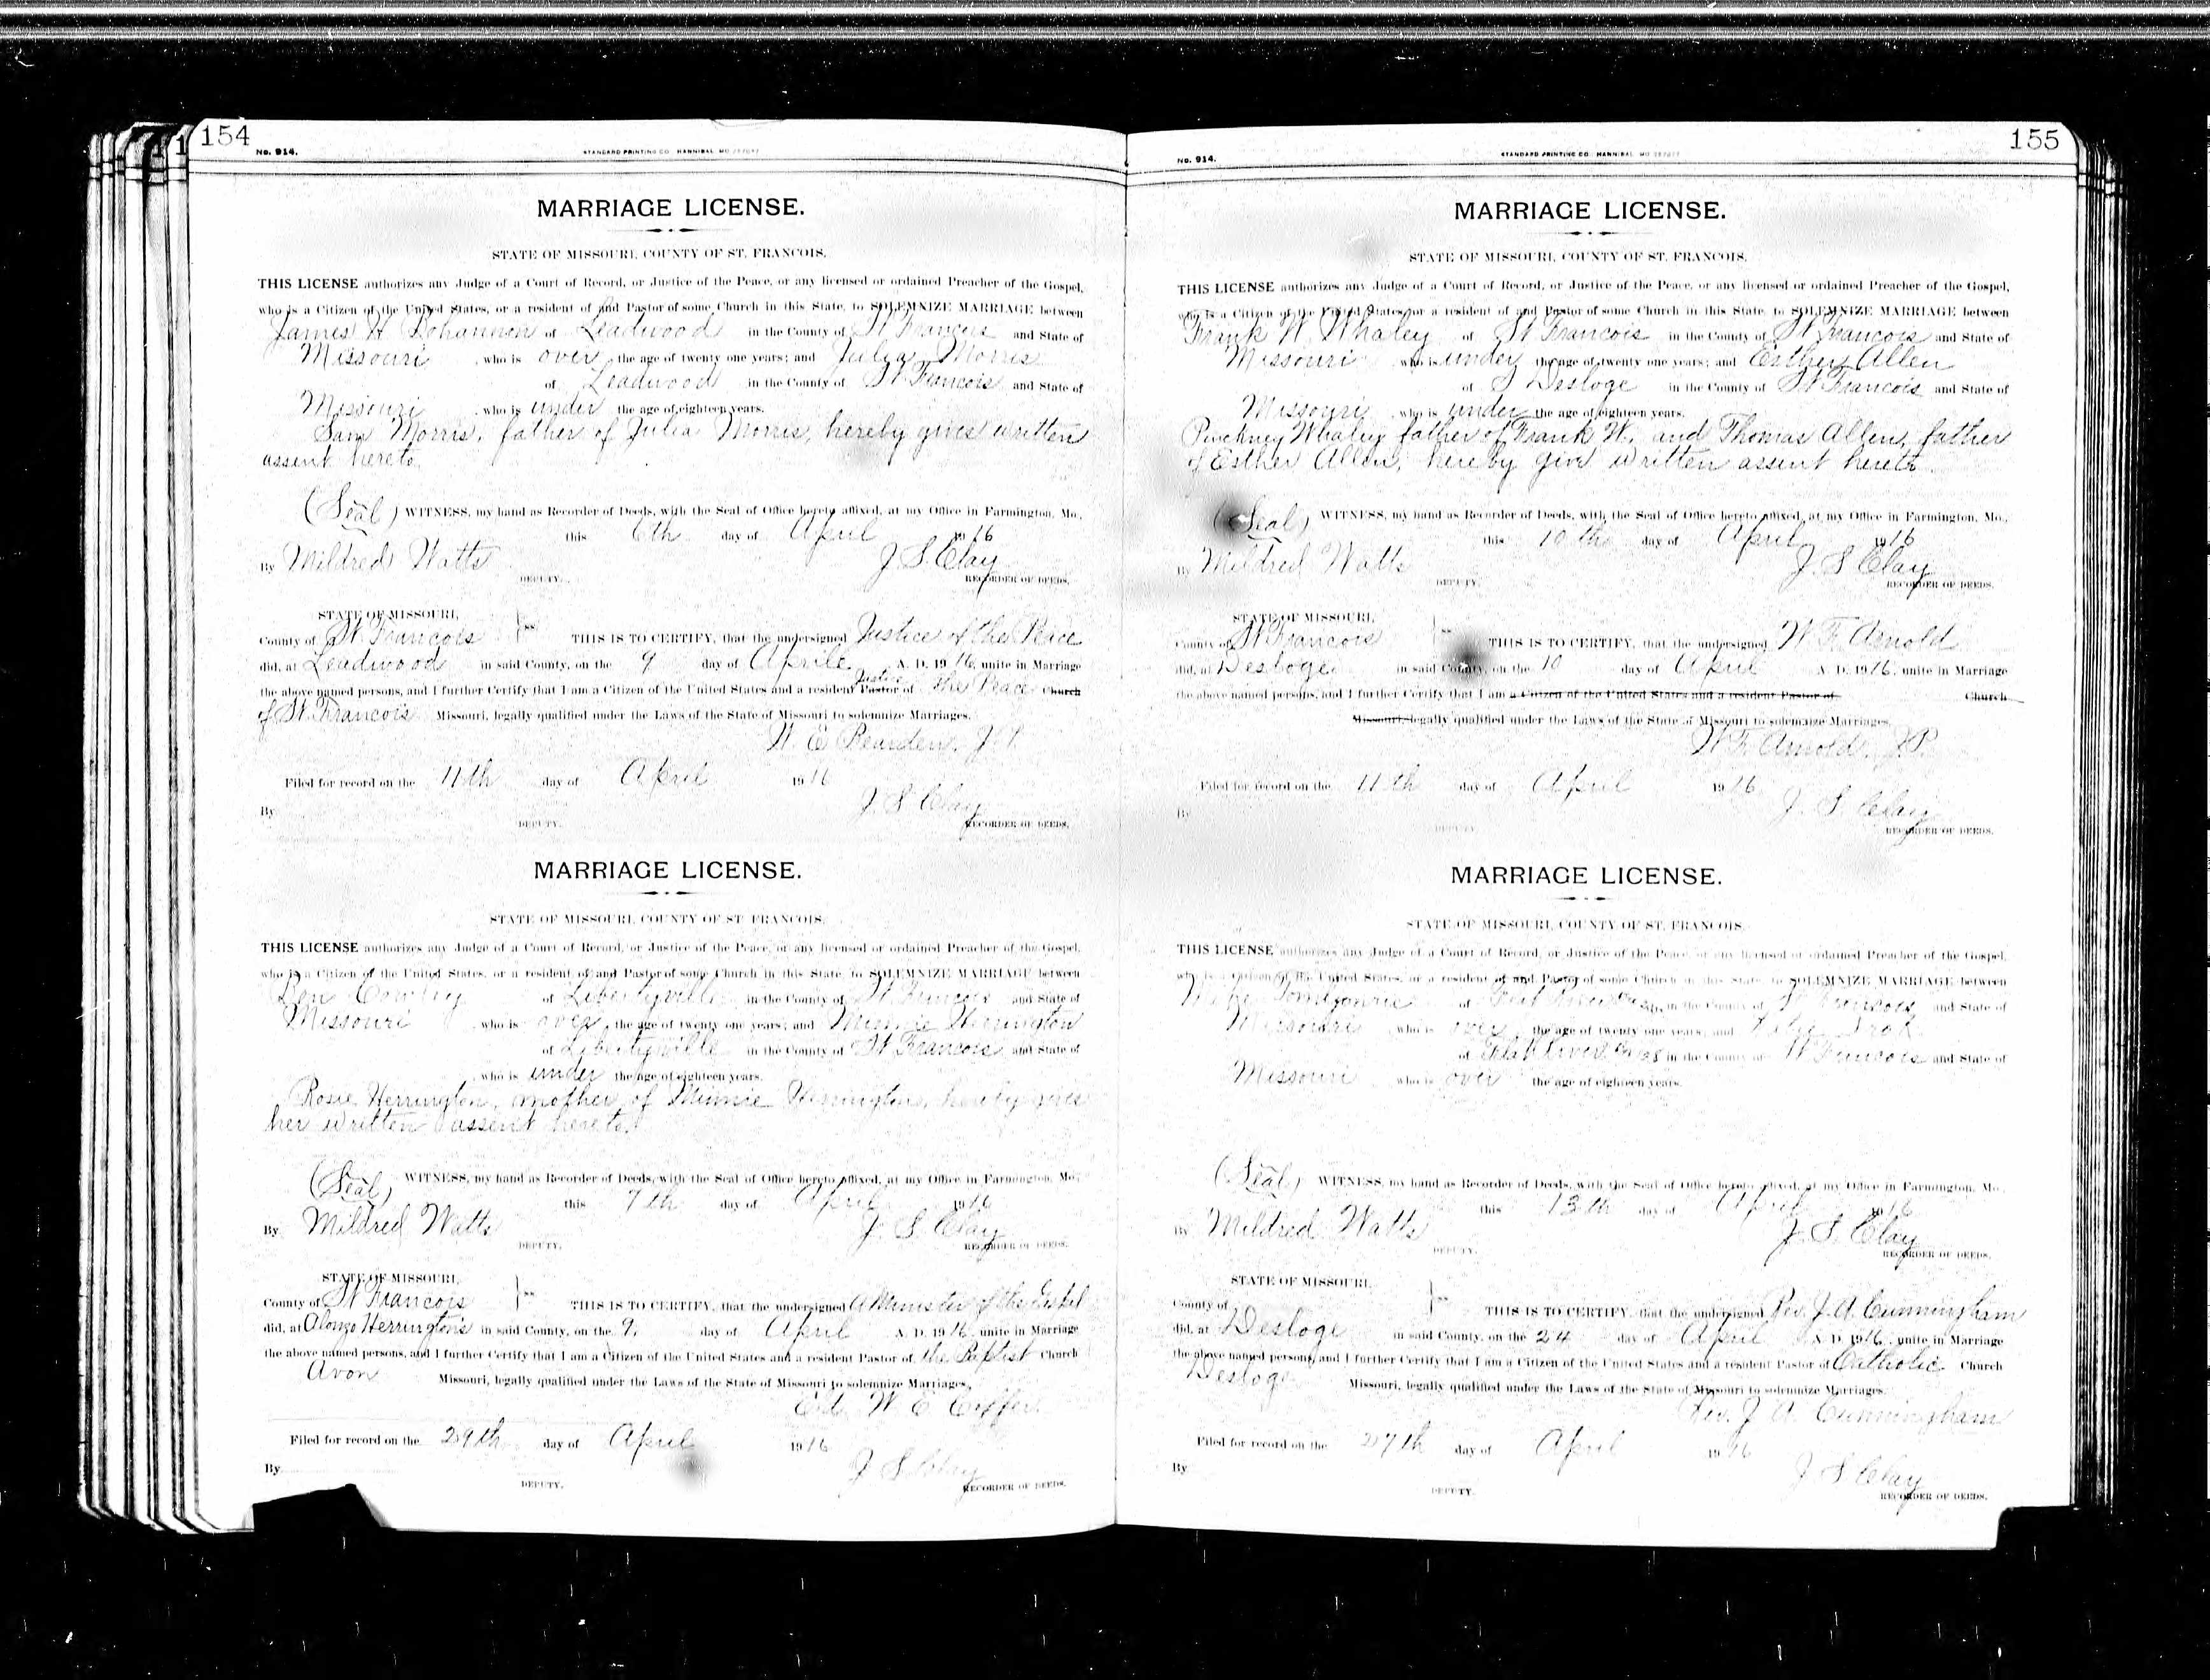 154
No. 914.
STANDARD PRINTING CO. HANNIBAL, MO.
MARRIAGE LICENSE.
STATE OF MISSOURI, COUNTY OF ST. FRANCOIS.
THIS LICENSE authorizes any Judge of a Court of Record, or Justice of the Peace, or any licensed or ordained Preacher of the Gospel,
who is a Citizen of the United States, or a resident of and Pastor of some Church in this State, to SOLEMNIZE MARRIAGE between
James H Bohannon of Leadwood in the County of St Francois and State of
Missouri , who is over the age of twenty one years; and Julia Morris
of Leadwood in the County of St Francois and State of
Missouri , who is under the age of eighteen years.
Sam Morris, father of Julia Morris, hereby gives written
assent hereto.
(Seal) WITNESS, my hand as Recorder of Deeds, with the Seal of Office hereto affixed, at my Office in Farmington, Mo.,
this 6th day of April 1916
By Mildred Watts J S. Clay
DEPUTY. RECORDER OF DEEDS.
STATE OF MISSOURI,
County of St Francois THIS IS TO CERTIFY, that the undersigned Justice of the Peace
did, at Leadwood in said County, on the 9 day of Aprile A. D. 1916, unite in Marriage
the above named persons, and I further Certify that I am a Citizen of the United States and a resident Pastor of Justice the Peace Church
of St. Francois Missouri, legally qualified under the Laws of the State of Missouri to solemnize Marriages.
W. E J.P.
Filed for record on the 11th day of April 1916
J S Clay
By
DEPUTY. RECORDER OF DEEDS.
MARRIAGE LICENSE.
STATE OF MISSOURI, COUNTY OF ST FRANCOIS.
THIS LICENSE authorizes any Judge of a Court of Record, or Justice of the Peace, or any licensed or ordained Preacher of the Gospel,
who is a Citizen of the United States, or a resident of and Pastor of some Church in this State, to SOLEMNIZE MARRIAGE between
Ben of Libertyville in the County of St Francois and State of
Missouri , who is over the age of twenty one years; and Minnie Herrington
of Libertyville in the County of St Francois and State of
, who is under the age of eighteen years.
Rosie Herrington, mother of Minnie Herrington, hereby gives
her written assent hereto.
(Seal) WITNESS, my hand as Recorder of Deeds, with the Seal of Office hereto affixed, at my Office in Farmington, Mo.,
this 7th day of April 1916
By Mildred Watts J. S. Clay
DEPUTY. RECORDER OF DEEDS.
STATE OF MISSOURI,
County of St Francois THIS IS TO CERTIFY, that the undersigned A Minister of the
did, at Alonzo Herrington's in said County, on the 9. day of April A. D. 1916, unite in Marriage
the above named persons, and I further Certify that I am a Citizen of the United States and a resident Pastor of the Baptist Church
Avon Missouri, legally qualified under the Laws of the State of Missouri to solemnize Marriages.
W E
Filed for record on the 29th day of April 1916
J S Clay
By
DEPUTY. RECORDER OF DEEDS.
155
No. 914.
STANDARD PRINTING CO. HANNIBAL, MO.
MARRIAGE LICENSE.
STATE OF MISSOURI, COUNTY OF ST. FRANCOIS.
THIS LICENSE authorizes any Judge of a Court of Record, or Justice of the Peace, or any licensed or ordained Preacher of the Gospel,
who is a Citizen of the United States, or a resident of and Pastor of some Church in this State, to SOLEMNIZE MARRIAGE between
Frank W. Whaley of St Francois in the County of St Francois and State of
Missouri , who is under the age of twenty one years; and Esther Allen
of Desloge in the County of St Francois and State of
Missouri , who is under the age of eighteen years.
Pinckney Whaley father of Frank W. and Thomas Allen, father
of Esther Allen, hereby give written assent hereto
(Seal) WITNESS, my hand as Recorder of Deeds, with the Seal of Office hereto affixed, at my Office in Farmington, Mo.,
this 10th day of April 1916
By Mildred Watts J. S Clay
DEPUTY. RECORDER OF DEEDS.
STATE OF MISSOURI,
County of St Francois THIS IS TO CERTIFY, that the undersigned W. F. Arnold
did, at Desloge in said County, on the 10 day of April A. D. 1916, unite in Marriage
the above named persons, and I further Certify that I am a Citizen of the United States and a resident Pastor of Church
Missouri, legally qualified under the Laws of the State of Missouri to solemnize Marriages.
W F. Arnold. J P.
Filed for record on the 11th day of April 1916
J. S. Clay
By
DEPUTY. RECORDER OF DEEDS.
MARRIAGE LICENSE.
STATE OF MISSOURI, COUNTY OF ST. FRANCOIS.
THIS LICENSE authorizes any Judge of a Court of Record, or Justice of the Peace, or any licensed or ordained Preacher of the Gospel,
who is a Citizen of the United States, or a resident of and Pastor of some Church in this State, to SOLEMNIZE MARRIAGE between
of in the County of St Francois and State of
Missouri , who is over the age of twenty one years; and
of Flat River in the County of St Francois and State of
Missouri who is over the age of eighteen years.
(Seal) WITNESS, my hand as Recorder of Deeds, with the Seal of Office hereto affixed, at my Office in Farmington, Mo.,
this 13th day of April 1916
By Mildred Watts J. S. Clay
DEPUTY. RECORDER OF DEEDS.
STATE OF MISSOURI,
County of THIS IS TO CERTIFY, that the undersigned Rev. J. A. Cunningham
did, at Desloge in said County, on the 24 day of April A. D. 1916, unite in Marriage
the above named persons, and I further Certify that I am a Citizen of the United States and a resident Pastor of Catholic Church
Desloge Missouri, legally qualified under the Laws of the State of Missouri to solemnize Marriages.
Rev. J A. Cunningham
Filed for record on the 27th day of April 1916
J S Clay
By
DEPUTY. RECORDER OF DEEDS.